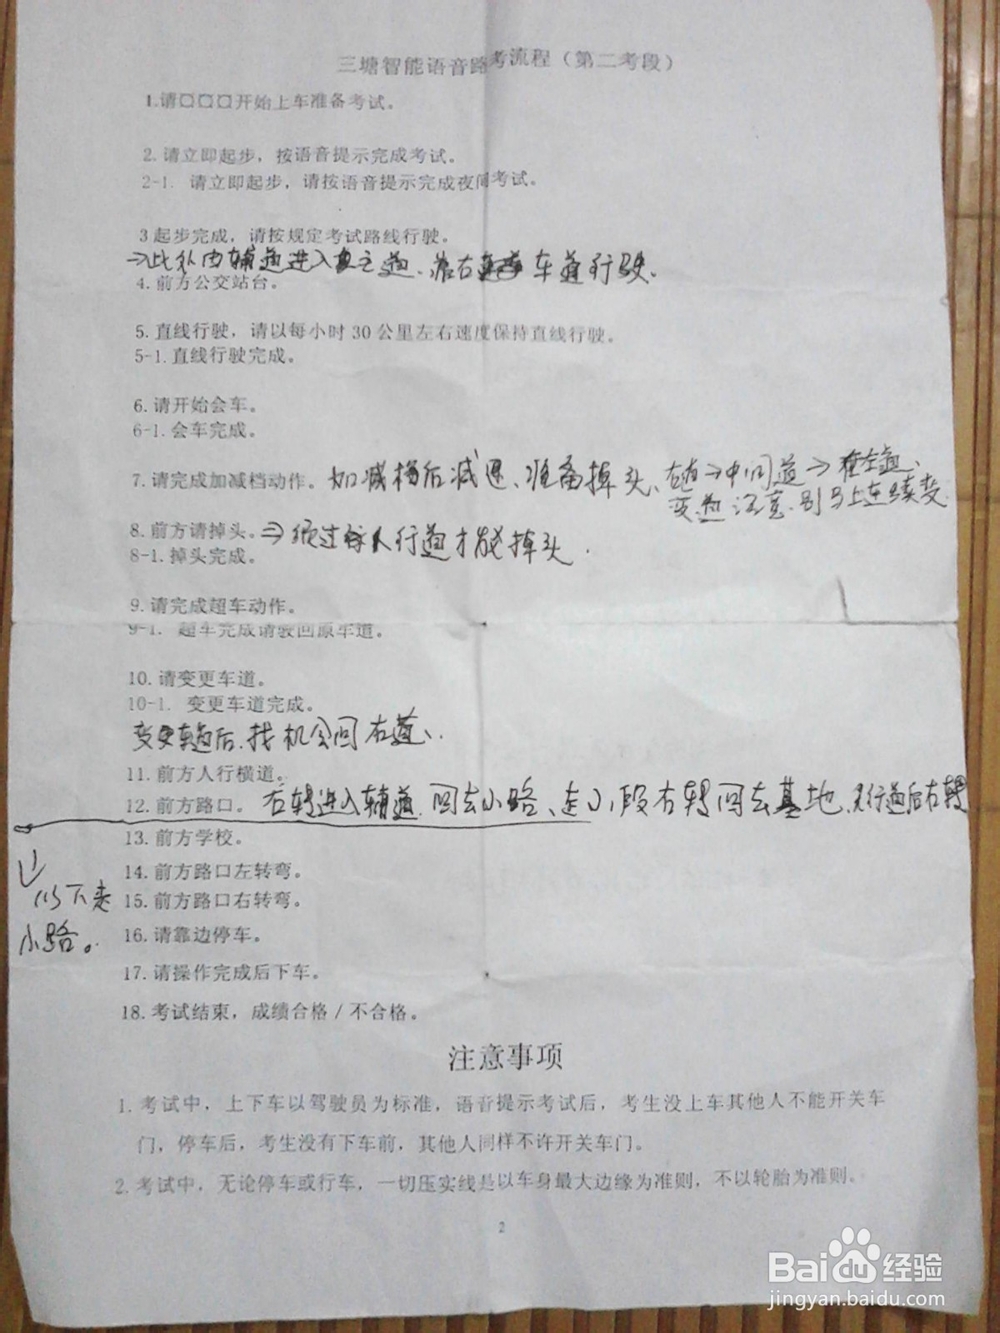 三塘智能语音路考流程（第二考段）
1.请□□□开始上车准备考试。
2. 请立即起步，按语音提示完成考试。
2-1. 请立即起步，请按语音提示完成夜间考试。
3 起步完成，请按规定考试路线行驶。
→此处由辅道进入主道、靠右车道行驶.
4. 前方公交站台。
5. 直线行驶，请以每小时 30 公里左右速度保持直线行驶。
5-1. 直线行驶完成。
6. 请开始会车。
6-1. 会车完成。
7. 请完成加减档动作。 加减档后减速、准备掉头、右道→中间道→左道、
变道注意.别马上连续变.
8. 前方请掉头。⇒须过人行道才能掉头.
8-1. 掉头完成。
9. 请完成超车动作。
9-1. 超车完成请驶回原车道。
10. 请变更车道。
10-1. 变更车道完成。
变更车道后.找机会回右道、
11. 前方人行横道。
12. 前方路口。 右转进入辅道.回去小路、走小段右转回去基地.人行道后右转
13. 前方学校。
14. 前方路口左转弯。
以下走
15. 前方路口右转弯。
小路。
16. 请靠边停车。
17. 请操作完成后下车。
18. 考试结束，成绩合格 / 不合格。
注意事项
1. 考试中，上下车以驾驶员为标准，语音提示考试后，考生没上车其他人不能开关车
门，停车后，考生没有下车前，其他人同样不许开关车门。
2. 考试中，无论停车或行车，一切压实线是以车身最大边缘为准则，不以轮胎为准则。
2
Baidu经验
jingyan.baidu.com